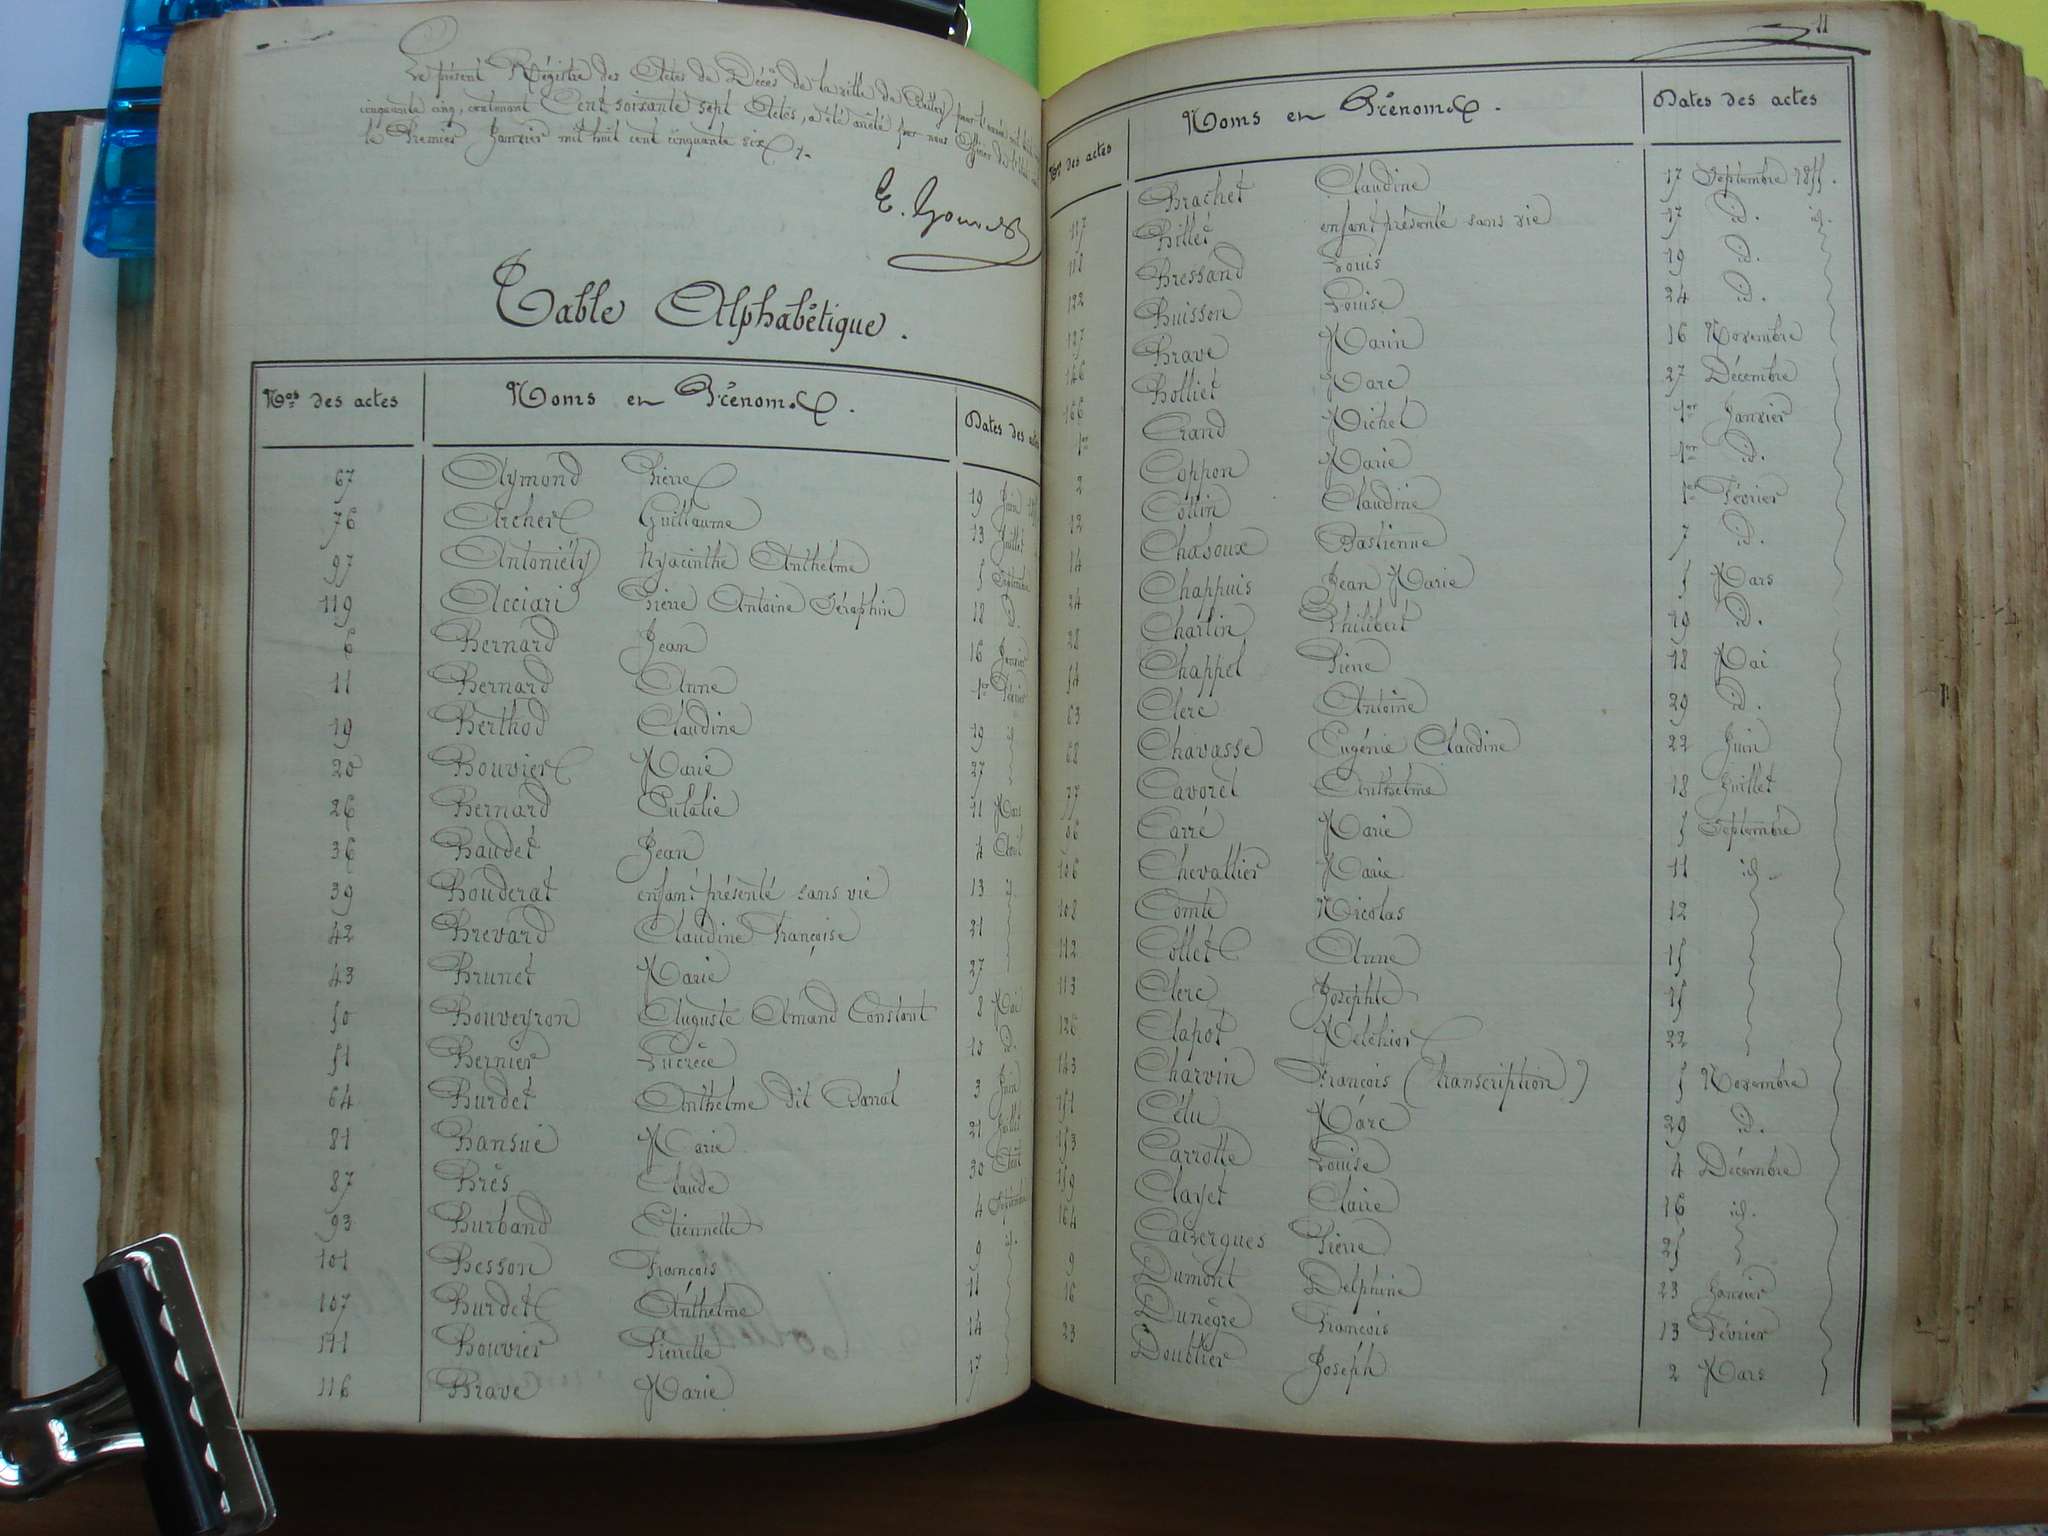 Le présent Régistre des Actes de Décès de la ville de Belley pour l'année mil huit cent
cinquante cinq, contenant Cent soixante sept Actes, a été arrêté par nous Officier de l'état civil
le Premier Janvier mil huit cent cinquante six
Table Alphabétique.
Nos des actes Noms et Prénoms. Dates des actes
67 Aymond Pierre 19 Juin
76 Archer Guillaume 13 Juillet
97 Antoniély Hyacinthe Anthelme 5 Septembre
119 Acciari Pierre Antoine Séraphin 18 d.
6 Bernard Jean 16 Janvier
11 Bernard Anne 1er Février
19 Berthod Claudine 19 id
20 Bouvier Marie 27
26 Bernard Eulalie 11 Mars
36 Baudet Jean 4 Avril
39 Bouderat enfant présenté sans vie 13
42 Brevard Claudine Françoise 21
43 Brunet Marie 27
50 Bouveyron Auguste Amand Constant 8 Mai
51 Bernier Lucrèce 15 d.
64 Burdet Anthelme dit Barral 3 Juin
81 Bansué Marie 21 Juillet
87 Brès Claude 30 Août
93 Burband Etiennette 4 Septembre
101 Besson François 9 id.
107 Burdet Anthelme 11
111 Bouvier Pierrette 14
116 Brave Marie 17
11
Nos des actes Noms et Prénoms. Dates des actes
117 Brachet Claudine 17 Septembre 1855.
118 Billet enfant présenté sans vie 17 d. id.
122 Bressand Louis 19 d.
127 Buisson Louise 24 id.
146 Brave Marin 16 Novembre
166 Bolliet Marc 27 Décembre
1er Crand Michel 1er Janvier
2 Coppon Marie 1er d.
12 Collin Claudine 1er Février
14 Chasoux Bastienne 7 d.
24 Chappuis Jean Marie 5 Mars
28 Charlin Philibert 19 d.
54 Chappel Pierre 18 Mai
63 Clerc Antoine 29 d.
68 Chavasse Eugénie Claudine 22 Juin
77 Cavoret Anthelme 18 Juillet
96 Carré Marie 5 Septembre
106 Chevallier Marie 11 id.
108 Comte Nicolas 12
112 Collet Anne 15
113 Clerc Josephte 15
126 Clapot Melchior 22
143 Charvin François (Transcription) 5 Novembre
151 Célu Marc 29 d.
153 Carrotte Louise 4 Décembre
159 Clayet Claire 16 id.
164 Cauvergues Pierre 25
9 Dumont Delphine 23 Janvier
16 Dunègre François 13 Février
23 Doublier Joseph 2 Mars